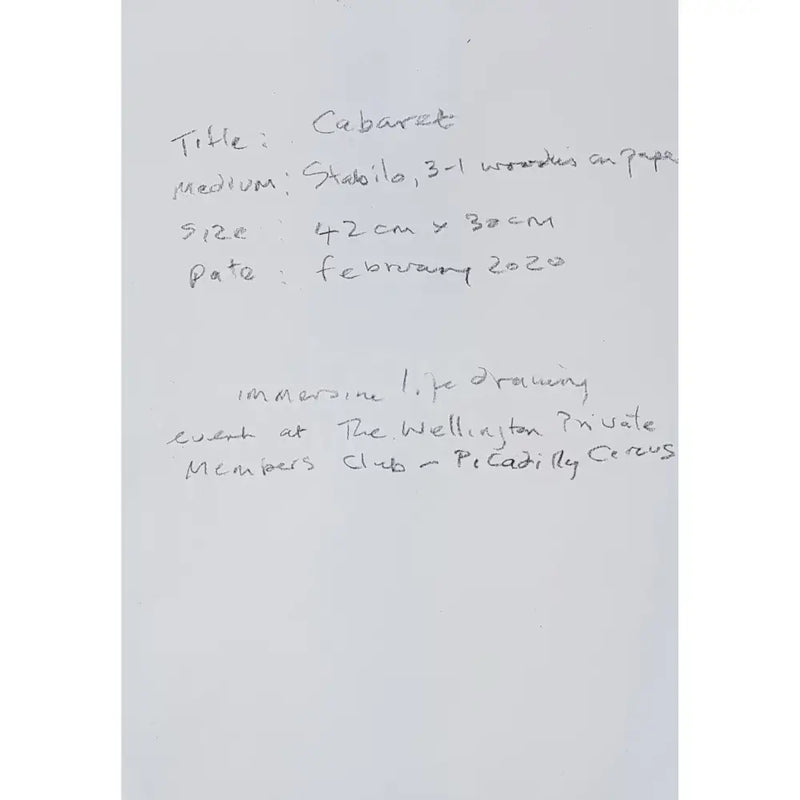 Title: Cabaret
Medium: Stabilo, 3-1 woodies on pape
Size: 42cm x 30cm
Date: february 2020
immersive life drawing
event at The Wellington Private
Members Club - Picadilly Cercus